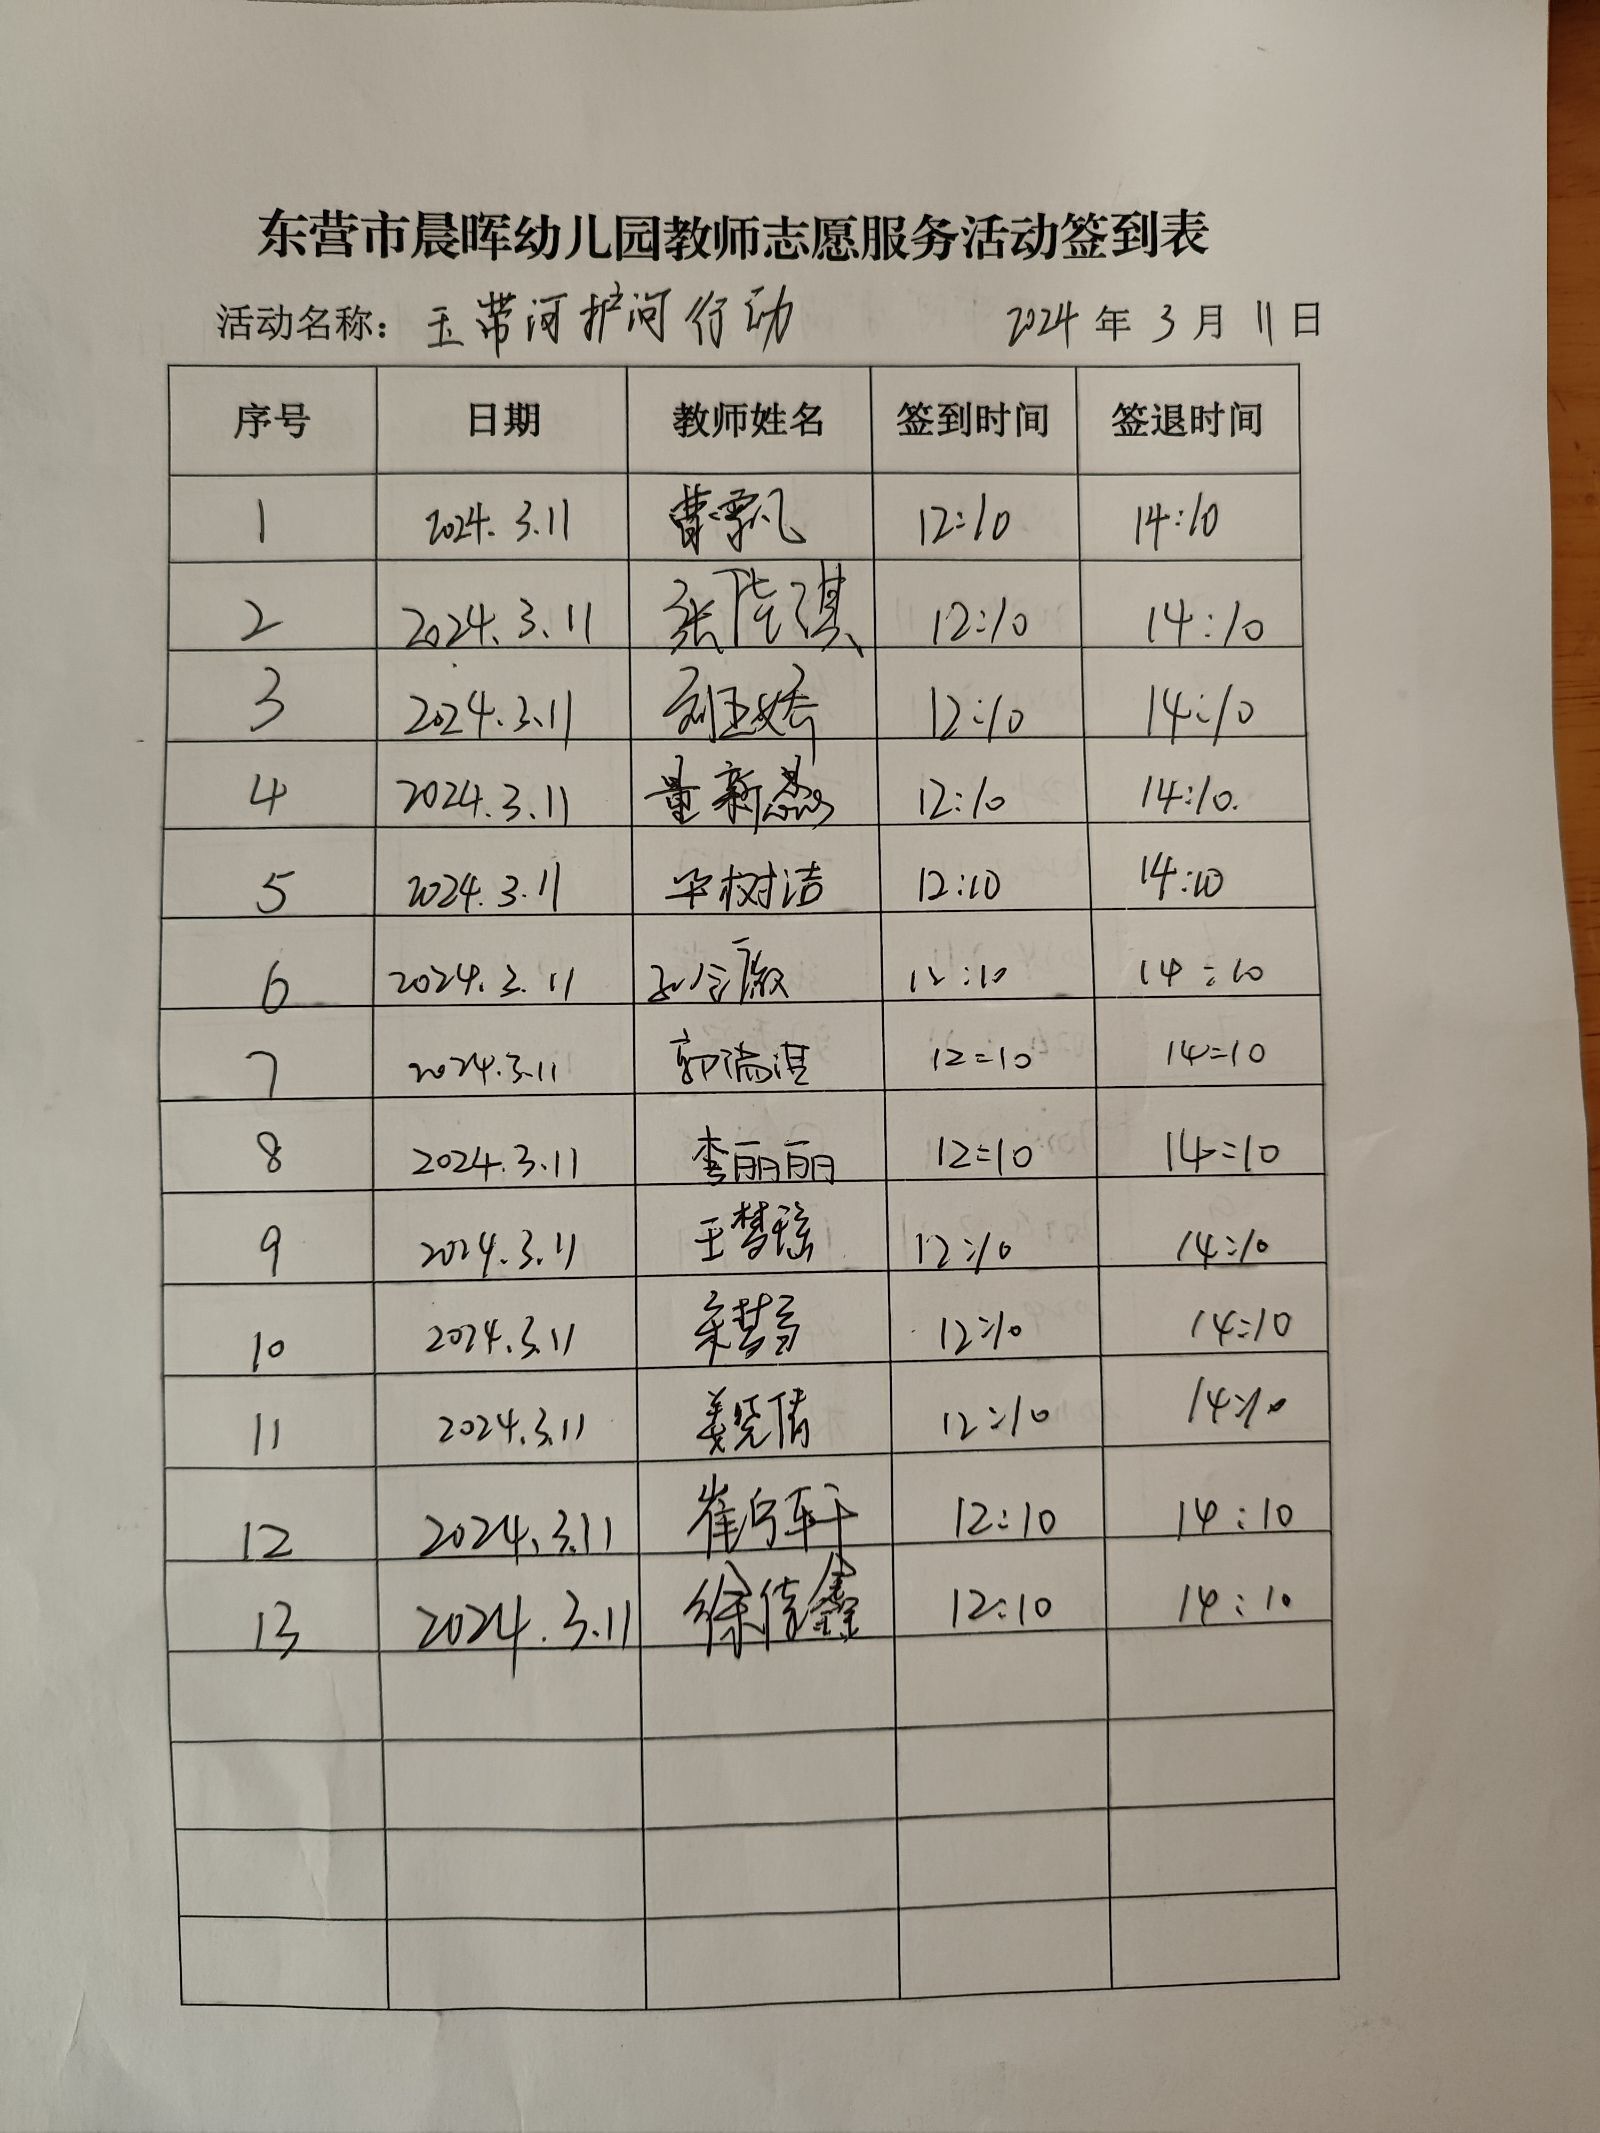 东营市晨晖幼儿园教师志愿服务活动签到表
活动名称：玉带河护河行动 2024 年 3 月 11 日
序号 日期 教师姓名 签到时间 签退时间
1 2024.3.11 曹雪凡 12:10 14:10
2 2024.3.11 张 琪 12:10 14:10
3 2024.3.11 刘亚娇 12:10 14:10
4 2024.3.11 董新蕊 12:10 14:10.
5 2024.3.11 毕树洁 12:10 14:10
6 2024.3.11 12:10 14:10
7 2024.3.11 郭瑞淇 12:10 14:10
8 2024.3.11 李丽丽 12:10 14:10
9 2024.3.11 王梦瑶 12:10 14:10
10 2024.3.11 12:10 14:10
11 2024.3.11 姜晓倩 12:10 14:10
12 2024.3.11 崔 轩 12:10 14:10
13 2024.3.11 徐佳鑫 12:10 14:10